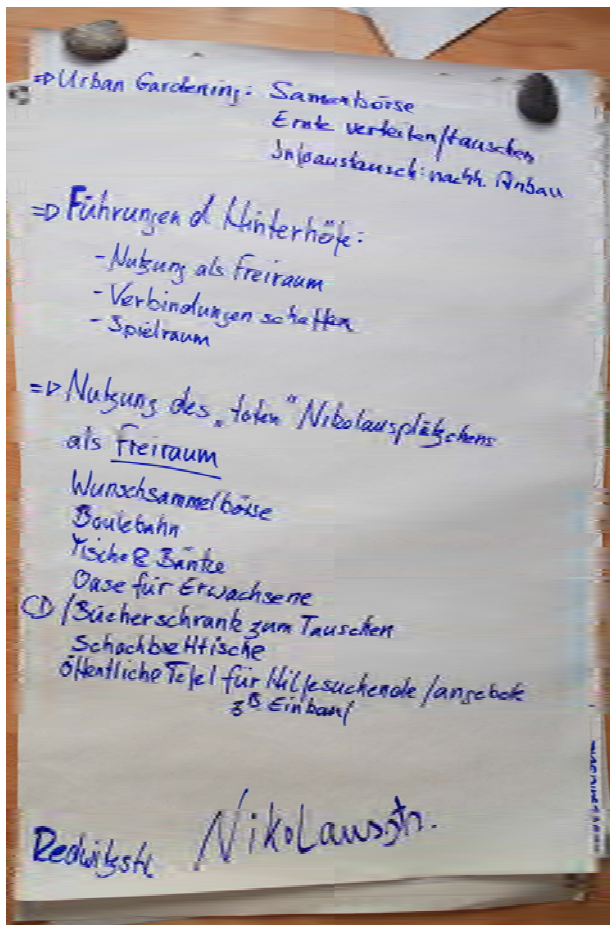 => Urban Gardening: Samenbörse
Ernte verteilen/tauschen
Infoaustausch: nachh. Anbau
=> Führungen d Hinterhöfe:
- Nutzung als Freiraum
- Verbindungen schaffen
- Spielraum
=> Nutzung des „toten" Nikolausplätzchens
als Freiraum
Wunschsammelbörse
Boulebahn
Tische & Bänke
Oase für Erwachsene
/Bücherschrank zum Tauschen
Schachbretttische
öffentliche Tafel für Hilfesuchende/angebote
zB Einkauf
Redwitzstr. Nikolausstr.